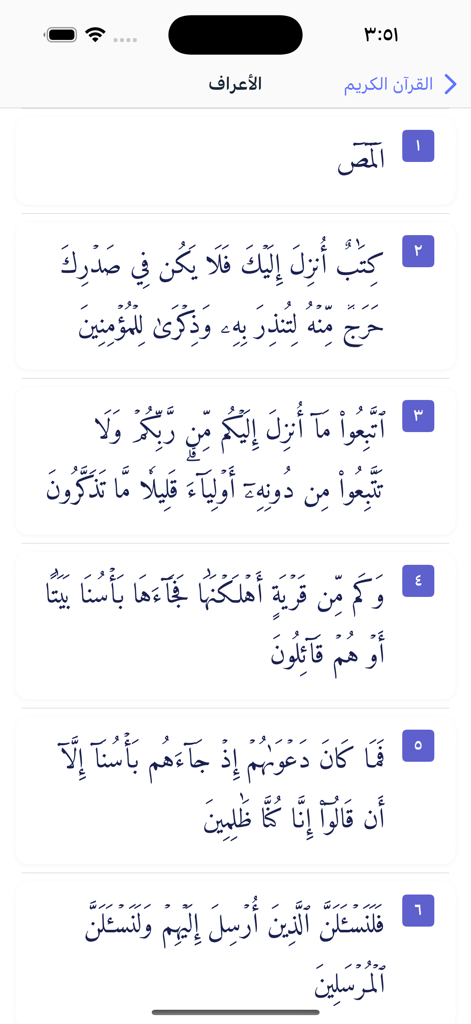 ٣:٥١
القرآن الكريم
الأعراف
١
الٓمٓصٓ
٢
كِتَٰبٌ أُنزِلَ إِلَيۡكَ فَلَا يَكُن فِي صَدۡرِكَ
حَرَجٞ مِّنۡهُ لِتُنذِرَ بِهِۦ وَذِكۡرَىٰ لِلۡمُؤۡمِنِينَ
٣
ٱتَّبِعُواْ مَآ أُنزِلَ إِلَيۡكُم مِّن رَّبِّكُمۡ وَلَا
تَتَّبِعُواْ مِن دُونِهِۦٓ أَوۡلِيَآءَۗ قَلِيلٗا مَّا تَذَكَّرُونَ
٤
وَكَم مِّن قَرۡيَةٍ أَهۡلَكۡنَٰهَا فَجَآءَهَا بَأۡسُنَا بَيَٰتًا
أَوۡ هُمۡ قَآئِلُونَ
٥
فَمَا كَانَ دَعۡوَىٰهُمۡ إِذۡ جَآءَهُم بَأۡسُنَآ إِلَّآ
أَن قَالُوٓاْ إِنَّا كُنَّا ظَٰلِمِينَ
٦
فَلَنَسۡـَٔلَنَّ ٱلَّذِينَ أُرۡسِلَ إِلَيۡهِمۡ وَلَنَسۡـَٔلَنَّ
ٱلۡمُرۡسَلِينَ